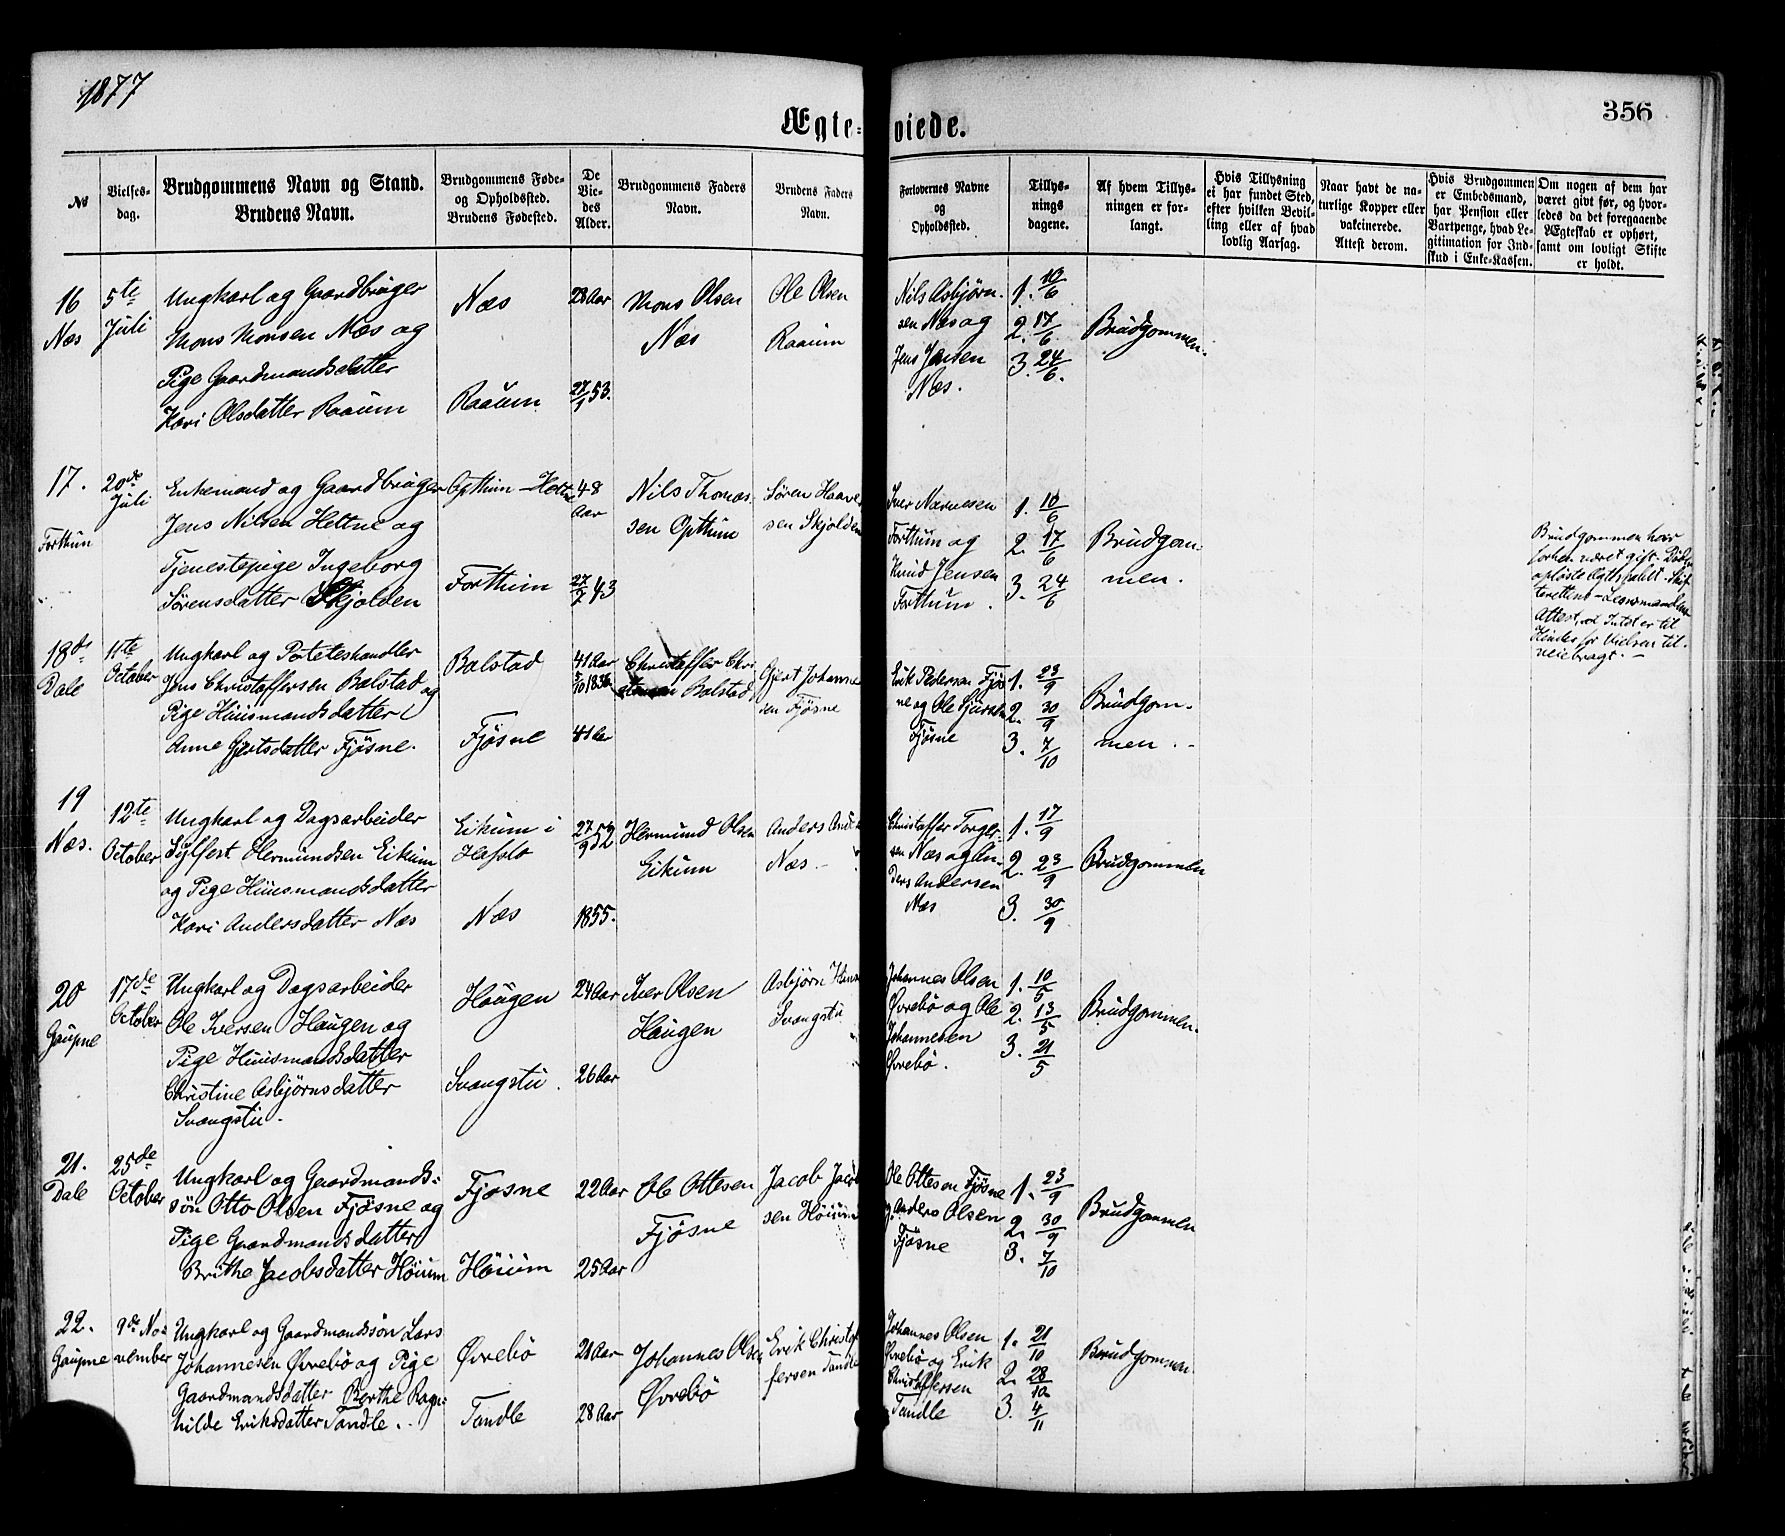 1877
356
Ægte-viede.
No
Vielses-dag.
Brudgommens Navn og Stand.
Brudens Navn.
Brudgommens Føde- og Opholdssted.
Brudens Fødested.
De Vie-des Alder.
Brudgommens Faders Navn.
Brudens Faders Navn.
Forlovernes Navne og Opholdssted.
Tillys-nings dagene.
Af hvem Tillys-ningen er for-langt.
Hvis Tillysning ei har fundet Sted, efter hvilken Bevil-ling eller af hvad lovlig Aarsag.
Naar havt de na-turlige Kopper eller vakcinerede. Attest derom.
Hvis Brudgommen er Embedsmand, har Pension eller Vartpenge, hvad Le-gitimation for Ind-skud i Enke-Kassen.
Om nogen af dem har været givt før, og hvor-ledes da det foregaaende Ægteskab er ophørt, samt om lovligt Skifte er holdt.
16
Næs
5te
Juli
Ungkarl og Gaardbruger
Mons Monsen Næs og
Pige Gaardmandsdatter
Kari Olsdatter Raaum
Næs
Raaum
28 Aar
27/1 53.
Mons Olsen
Næs
Ole Olsen
Raaum
Nils Asbjørn-
sen Næs og
Jens Jensen
Næs.
1. 10/6
2. 17/6
3. 24/6.
Brudgommen.
17.
Forthun
20de
Juli
Enkemand og Gaardbruger
Jens Nilsen Heltne og
Tjenestepige Ingeborg
Sørensdatter Skjolden
Opthun - Heltne
Forthum
48
Aar
27/7 43
Nils Thomas-
sen Opthun
Søren Haave
sen Skjolden
Forthum og
Knud Jensen
Forthum.
1. 10/6
2. 17/6
3. 24/6
Brudgom-
men.
Brudgommen har
forhen været gift. Døden
opløste Ægteskabet - Skif
terettens - Lensmandens
Attest, at Intet er til
Hinder for Vielsen til-
veiebragt. -
18de
Dale
11te
October
Ungkarl og Poteteshandler
Jens Christoffersen Balstad og
Pige Huusmandsdatter
Anne Gjertsdatter Fjøsne.
Balstad
Fjøsne
41 Aar
5/10 1836
41 Aar
Christoffer Chri
Balstad
Gjert Johanne
sen Fjøsne
Erik Pedersen Fjøs
ne og Ole Sjursen
Fjøsne
1. 23/9
2. 30/9
3. 7/10
Brudgom-
men. -
19
Næs.
12te
October
Ungkarl og Dagsarbeider
Sylfest Hermundsen Eikum
og Pige Huusmandsdatter
Kari Andersdatter Næs
Eikum i
Hafslo
Næs
27/9 52
1855.
Hermund Olsen
Eikum
Anders And
Næs -
Christoffer Torger-
sen Næs og An-
ders Andersen
Næs
1. 17/9
2. 23/9
3. 30/9
Brudgommen
20
Gaupne
17de
October
Ungkarl og Dagsarbeider
Ole Iversen Haugen og
Pige Huusmandsdatter
Christine Asbjørnsdatter
Svangstu.
Haugen
Svangstu.
24 Aar
26 Aar
Iver Olsen
Haugen
Asbjørn Hans
Svangstu
Johannes Olsen
Øvrebø og Ole
Johannesen
Øvrebø.
1. 10/5
2. 13/5
3. 21/5
Brudgommen.
21.
Dale
25de
October
Ungkarl og Gaardmands-
søn Otto Olsen Fjøsne og
Pige Gaardmandsdatter
Brithe Jacobsdatter Høium
Fjøsne
Høium
22 Aar
25 Aar
Ole Ottesen
Fjøsne
Jacob Jacob
sen Høium
Ole Ottesen Fjøsne
og Anders Olsen
Fjøsne
1. 23/9
2. 30/9
3. 7/10
Brudgommen
22.
Gaupne
9de No-
vember
Ungkarl og Gaardmandssøn Lars
Johannesen Øvrebø og Pige
Gaardmandsdatter Berthe Ragn-
hilde Eriksdatter Tandle.
Øvrebø
Tandle
21 Aar
28 Aar
Johannes Olsen
Øvrebø
Erik Christof
fersen Tandle
Johannes Olsen
Øvrebø og Erik
Christoffersen
Tandle
1. 21/10
2. 28/10
3. 4/11
Brudgommen